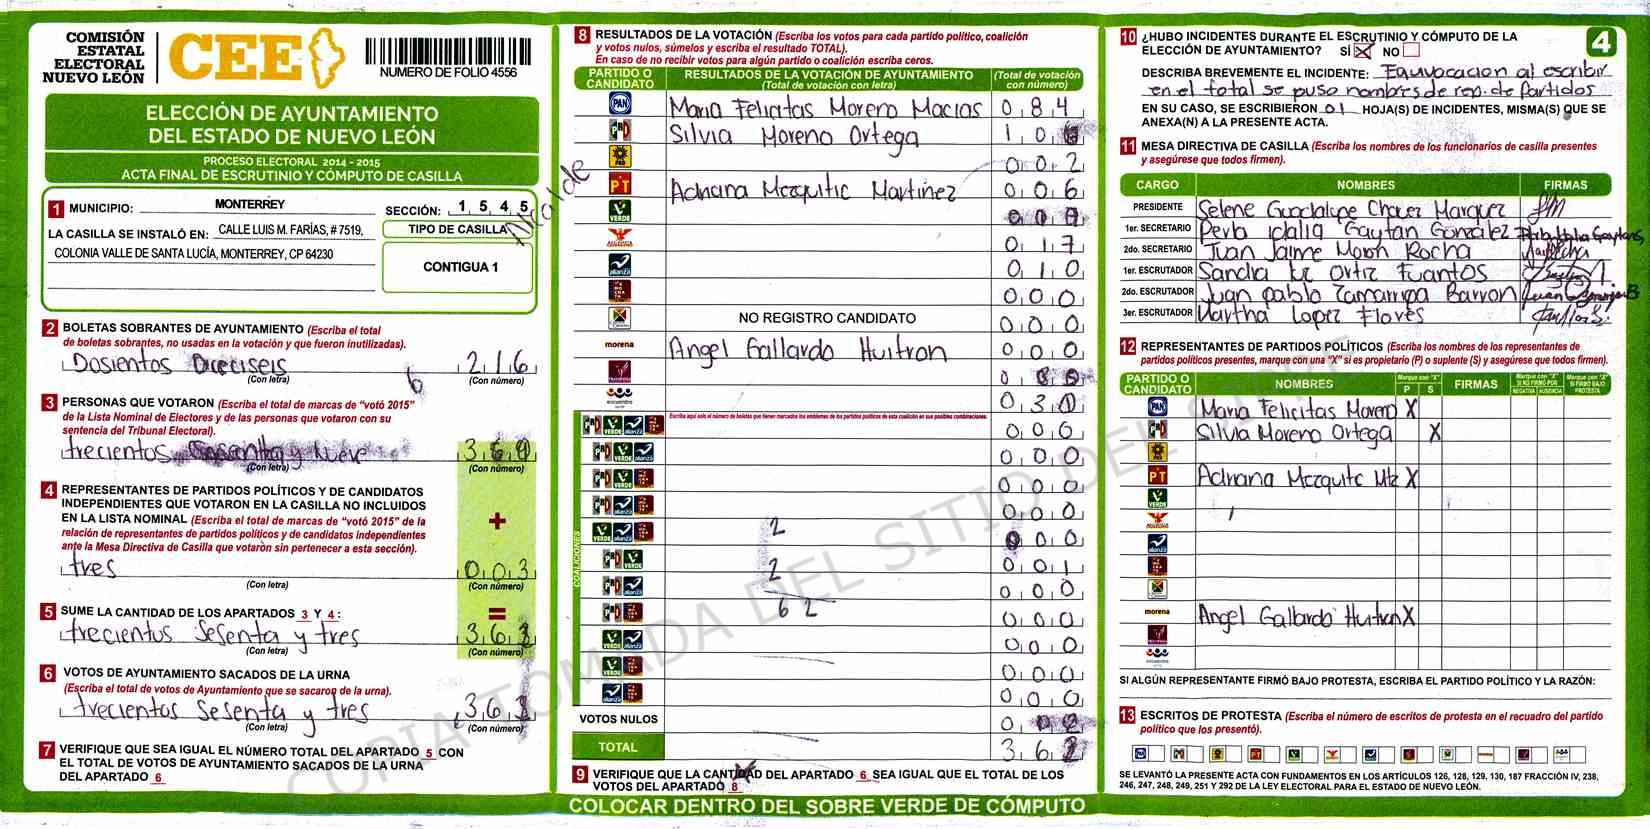 COMISIÓN
ESTATAL
ELECTORAL
NUEVO LEÓN
CEE
NUMERO DE FOLIO 4556
ELECCIÓN DE AYUNTAMIENTO
DEL ESTADO DE NUEVO LEÓN
PROCESO ELECTORAL 2014 - 2015
ACTA FINAL DE ESCRUTINIO Y CÓMPUTO DE CASILLA
Alcalde
1 MUNICIPIO: MONTERREY
SECCIÓN: 1 5 4 5
LA CASILLA SE INSTALÓ EN: CALLE LUIS M. FARÍAS, # 7519,
COLONIA VALLE DE SANTA LUCÍA, MONTERREY, CP 64230
TIPO DE CASILLA
CONTIGUA 1
2 BOLETAS SOBRANTES DE AYUNTAMIENTO (Escriba el total
de boletas sobrantes, no usadas en la votación y que fueron inutilizadas).
Dosientos Dieciseis 2 1 6
(Con letra) (Con número)
6
3 PERSONAS QUE VOTARON (Escriba el total de marcas de “votó 2015”
de la Lista Nominal de Electores y de las personas que votaron con su
sentencia del Tribunal Electoral).
trecientos 3 6 0
(Con letra) (Con número)
4 REPRESENTANTES DE PARTIDOS POLÍTICOS Y DE CANDIDATOS
INDEPENDIENTES QUE VOTARON EN LA CASILLA NO INCLUIDOS
EN LA LISTA NOMINAL (Escriba el total de marcas de “votó 2015” de la
relación de representantes de partidos políticos y de candidatos independientes
ante la Mesa Directiva de Casilla que votaron sin pertenecer a esta sección).
+
tres 0 0 3
(Con letra) (Con número)
5 SUME LA CANTIDAD DE LOS APARTADOS 3 Y 4 :
=
trecientos Sesenta y tres 3 6 3
(Con letra) (Con número)
6 VOTOS DE AYUNTAMIENTO SACADOS DE LA URNA
(Escriba el total de votos de Ayuntamiento que se sacaron de la urna).
trecientos Sesenta y tres 3 6 3
(Con letra) (Con número)
7 VERIFIQUE QUE SEA IGUAL EL NÚMERO TOTAL DEL APARTADO 5 CON
EL TOTAL DE VOTOS DE AYUNTAMIENTO SACADOS DE LA URNA
DEL APARTADO 6
8 RESULTADOS DE LA VOTACIÓN (Escriba los votos para cada partido político, coalición
y votos nulos, súmelos y escriba el resultado TOTAL).
En caso de no recibir votos para algún partido o coalición escriba ceros.
PARTIDO O
CANDIDATO
RESULTADOS DE LA VOTACIÓN DE AYUNTAMIENTO
(Total de votación con letra)
(Total de votación
con número)
PAN Maria Felicitas Moreno Macias 0 8 4
PRD Silvia Moreno Ortega 1 0
PRD 0 0 2
PT Adriana Mezquitic Martinez 0 0 6
VERDE 0 0
0 1 7
alianza 0 1 0
0 0 0
NO REGISTRO CANDIDATO 0 0 0
morena Angel Gallardo Huitron 0 0 0
0 8
encuentro 0 3 0
Escriba aquí solo el número de boletas que tienen marcados los emblemas de los partidos políticos de esta coalición en sus posibles combinaciones.
COALICIONES
0 0 6
0 0 0
0 0 0
0 0 0
0 0 0
0 0 1
0 0 0
0 0 0
0 0 0
0 0 0
0 0 0
2
2
6 2
VOTOS NULOS 0 0 2
TOTAL 3 6 2
9 VERIFIQUE QUE LA CANTIDAD DEL APARTADO 6 SEA IGUAL QUE EL TOTAL DE LOS
VOTOS DEL APARTADO 8
COLOCAR DENTRO DEL SOBRE VERDE DE CÓMPUTO
10 ¿HUBO INCIDENTES DURANTE EL ESCRUTINIO Y CÓMPUTO DE LA
ELECCIÓN DE AYUNTAMIENTO? SÍ X NO
4
DESCRIBA BREVEMENTE EL INCIDENTE: Equivocacion al escribir
en el total se puso nombres de rep. de Partidos
EN SU CASO, SE ESCRIBIERON 01 HOJA(S) DE INCIDENTES, MISMA(S) QUE SE
ANEXA(N) A LA PRESENTE ACTA.
11 MESA DIRECTIVA DE CASILLA (Escriba los nombres de los funcionarios de casilla presentes
y asegúrese que todos firmen).
CARGO NOMBRES FIRMAS
PRESIDENTE Selene Guadalupe Chavez Marquez
1er. SECRETARIO Perla Idalia Gaytan González
2do. SECRETARIO Juan Jaime Moron Rocha
1er. ESCRUTADOR Sandra Ortiz Fuantos
2do. ESCRUTADOR Juan pablo Zamarripa Barron
3er. ESCRUTADOR Martha Lopez Flores
12 REPRESENTANTES DE PARTIDOS POLÍTICOS (Escriba los nombres de los representantes de
partidos políticos presentes, marque con una "X" si es propietario (P) o suplente (S) y asegúrese que todos firmen).
PARTIDO O
CANDIDATO
NOMBRES
Marque con "X"
P S
FIRMAS
Marque con "X"
SI NO FIRMÓ POR
NEGATIVA AUSENCIA
Marque con "X"
SI FIRMÓ BAJO
PROTESTA
PAN Maria Felicitas Moreno X
Silvia Moreno Ortega X
PT Adriana Mezquitic Mtz X
morena Angel Gallardo Huitron X
SI ALGÚN REPRESENTANTE FIRMÓ BAJO PROTESTA, ESCRIBA EL PARTIDO POLÍTICO Y LA RAZÓN:
13 ESCRITOS DE PROTESTA (Escriba el número de escritos de protesta en el recuadro del partido
político que los presentó).
SE LEVANTÓ LA PRESENTE ACTA CON FUNDAMENTOS EN LOS ARTÍCULOS 126, 128, 129, 130, 187 FRACCIÓN IV, 238,
246, 247, 248, 249, 251 Y 292 DE LA LEY ELECTORAL PARA EL ESTADO DE NUEVO LEÓN.
COPIA TOMADA DEL SITIO DEL SIPRE